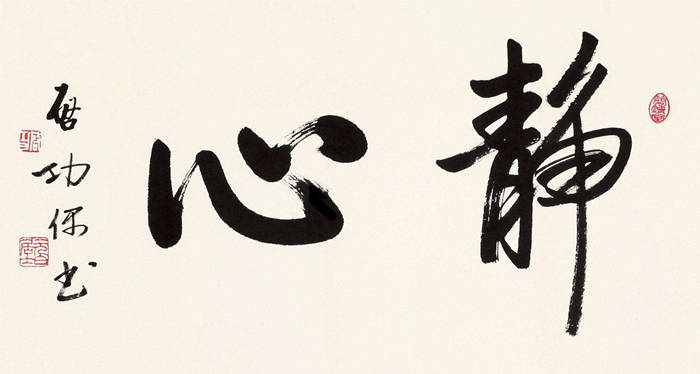 静心
启功保书